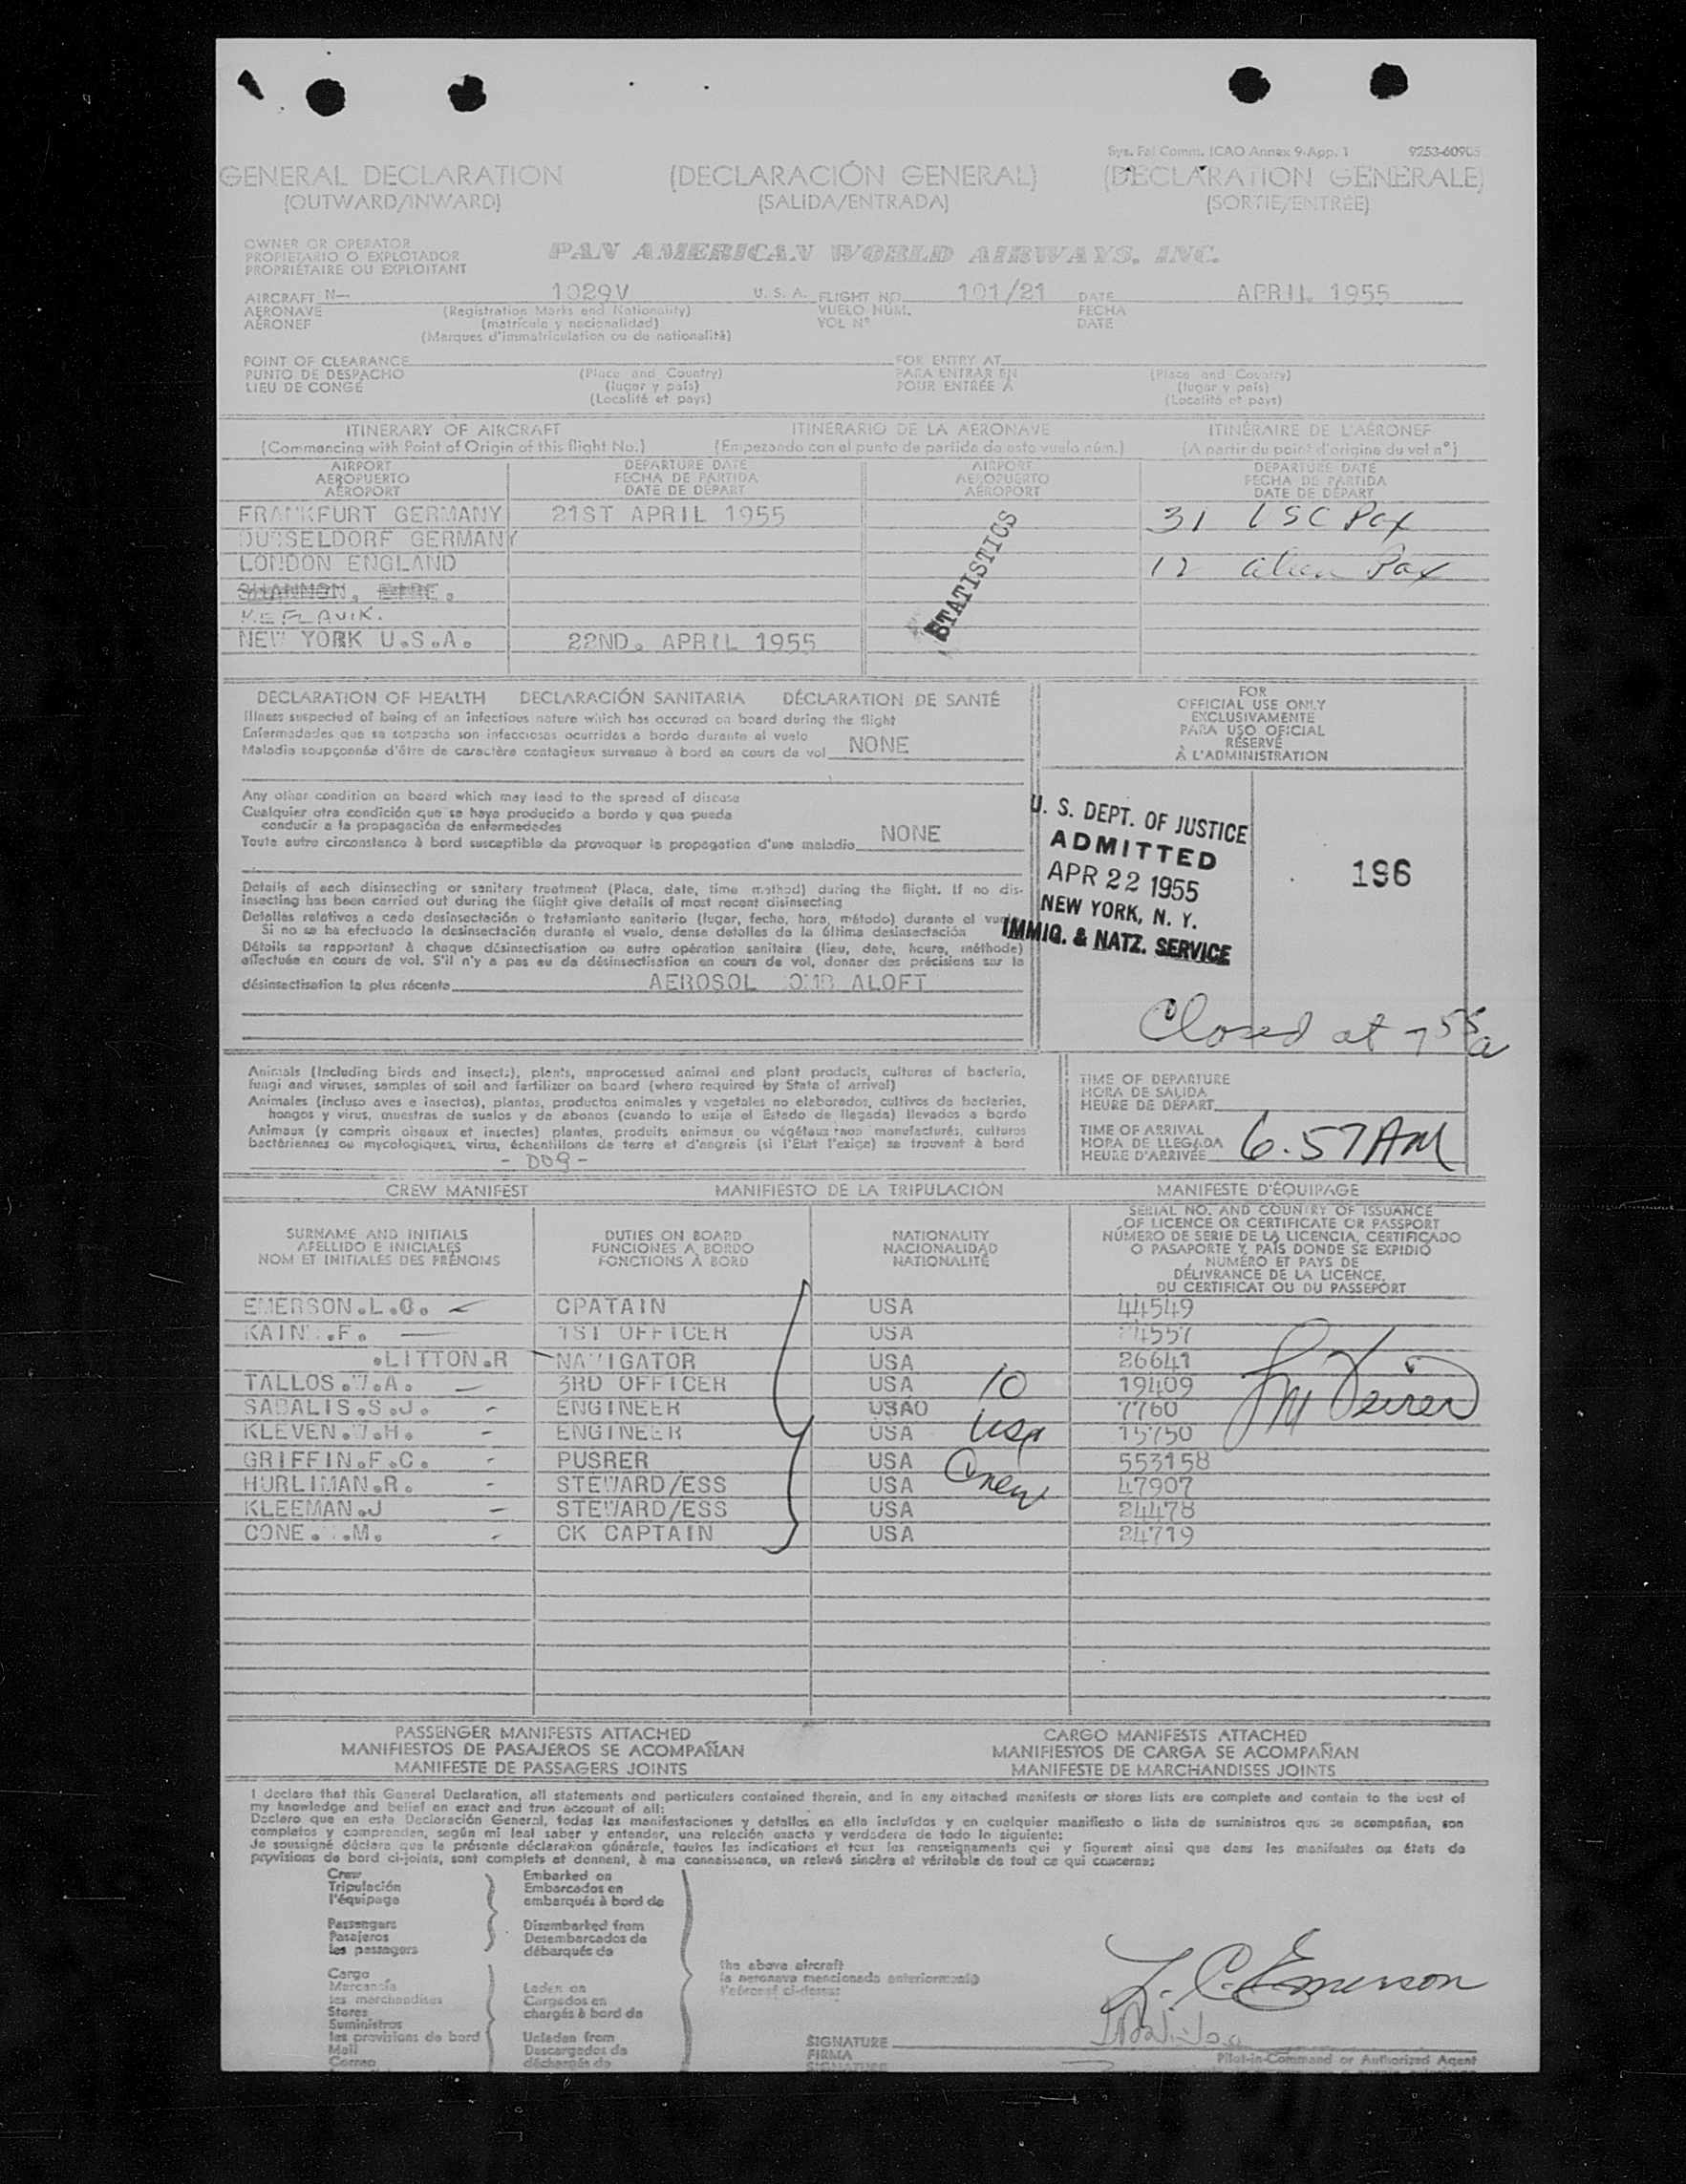 Sys. Fal Comm. ICAO Annex 9-App. 1 9253-60905
GENERAL DECLARATION (DECLARACIÓN GENERAL) (DÉCLARATION GÉNÉRALE)
(OUTWARD/INWARD) (SALIDA/ENTRADA) (SORTIE/ENTRÉE)
OWNER OR OPERATOR
PROPIETARIO O EXPLOTADOR
PROPRIÉTAIRE OU EXPLOITANT
PAN AMERICAN WORLD AIRWAYS, INC.
AIRCRAFT N— 1029V U. S. A. FLIGHT NO. 101/21 DATE APRIL 1955
AERONAVE (Registration Marks and Nationality) VUELO NÚM. FECHA
AÉRONEF (matrícula y nacionalidad) VOL N° DATE
(Marques d'immatriculation ou de nationalité)
POINT OF CLEARANCE FOR ENTRY AT
PUNTO DE DESPACHO (Place and Country) PARA ENTRAR EN (Place and Country)
LIEU DE CONGÉ (lugar y país) POUR ENTRÉE À (lugar y país)
(Localité et pays) (Localité et pays)
ITINERARY OF AIRCRAFT ITINERARIO DE LA AERONAVE ITINÉRAIRE DE L'AÉRONEF
(Commencing with Point of Origin of this flight No.) (Empezando con el punto de partida de este vuelo núm.) (A partir du point d'origine du vol n°)
AIRPORT DEPARTURE DATE AIRPORT DEPARTURE DATE
AEROPUERTO FECHA DE PARTIDA AEROPUERTO FECHA DE PARTIDA
AÉROPORT DATE DE DÉPART AÉROPORT DATE DE DÉPART
FRANKFURT GERMANY 21ST APRIL 1955 31 USC Pax
DUSSELDORF GERMANY
LONDON ENGLAND 12 alien Pax
SHANNON. EIRE.
KEFLAVIK.
NEW YORK U.S.A. 22ND. APRIL 1955
STATISTICS
DECLARATION OF HEALTH DECLARACIÓN SANITARIA DÉCLARATION DE SANTÉ
Illness suspected of being of an infectious nature which has occured on board during the flight
Enfermedades que se sospecha son infecciosas ocurridas a bordo durante el vuelo
Maladie soupçonnée d'être de caractère contagieux survenue à bord en cours de vol NONE
Any other condition on board which may lead to the spread of disease
Cualquier otra condición que se haya producido a bordo y que pueda
conducir a la propagación de enfermedades
Toute autre circonstance à bord susceptible de provoquer la propagation d'une maladie NONE
Details of each disinsecting or sanitary treatment (Place, date, time method) during the flight. If no dis-
insecting has been carried out during the flight give details of most recent disinsecting
Detalles relativos a cada desinsectación o tratamiento sanitario (lugar, fecha, hora, método) durante el vuelo
Si no se ha efectuado la desinsectación durante el vuelo, dense detalles de la última desinsectación
Détails se rapportant à chaque désinsectisation ou autre opération sanitaire (lieu, date, heure, méthode)
effectuée en cours de vol. S'il n'y a pas eu de désinsectisation en cours de vol, donner des précisions sur la
désinsectisation la plus récente AEROSOL ALOFT
FOR
OFFICIAL USE ONLY
EXCLUSIVAMENTE
PARA USO OFICIAL
RÉSERVÉ
À L'ADMINISTRATION
U. S. DEPT. OF JUSTICE
ADMITTED
APR 22 1955
NEW YORK, N. Y.
IMMIG. & NATZ. SERVICE
196
Closed at 7 55 a
Animals (Including birds and insects), plants, unprocessed animal and plant products, cultures of bacteria,
fungi and viruses, samples of soil and fertilizer on board (where required by State of arrival)
Animales (incluso aves e insectos), plantas, productos animales y vegetales no elaborados, cultivos de bacterias,
hongos y virus, muestras de suelos y de abonos (cuando lo exija el Estado de llegada) llevados a bordo
Animaux (y compris oiseaux et insectes) plantes, produits animaux ou végétaux non manufacturés, cultures
bactériennes ou mycologiques, virus, échantillons de terre et d'engrais (si l'Etat l'exige) se trouvant à bord
- DOG -
TIME OF DEPARTURE
HORA DE SALIDA
HEURE DE DÉPART
TIME OF ARRIVAL
HORA DE LLEGADA
HEURE D'ARRIVÉE 6.57AM
CREW MANIFEST MANIFIESTO DE LA TRIPULACIÓN MANIFESTE D'ÉQUIPAGE
SURNAME AND INITIALS
APELLIDO E INICIALES
NOM ET INITIALES DES PRÉNOMS
DUTIES ON BOARD
FUNCIONES A BORDO
FONCTIONS À BORD
NATIONALITY
NACIONALIDAD
NATIONALITÉ
SERIAL NO. AND COUNTRY OF ISSUANCE
OF LICENCE OR CERTIFICATE OR PASSPORT
NÚMERO DE SERIE DE LA LICENCIA, CERTIFICADO
O PASAPORTE Y PAÍS DONDE SE EXPIDIÓ
NUMÉRO ET PAYS DE
DÉLIVRANCE DE LA LICENCE,
DU CERTIFICAT OU DU PASSEPORT
EMERSON.L.C. CPATAIN USA 44549
KAIN .F. 1ST OFFICER USA 4557
.LITTON.R NAVIGATOR USA 26641
TALLOS.W.A. 3RD OFFICER USA 19409
SABALIS.S.J. ENGINEER USAO 7760
KLEVEN.W.H. ENGINEER USA 15750
GRIFFIN.F.C. PUSRER USA 553158
HURLIMAN.R. STEWARD/ESS USA 47907
KLEEMAN.J STEWARD/ESS USA 24478
CONE. .M. CK CAPTAIN USA 24719
10
USA
Crew
PASSENGER MANIFESTS ATTACHED CARGO MANIFESTS ATTACHED
MANIFIESTOS DE PASAJEROS SE ACOMPAÑAN MANIFIESTOS DE CARGA SE ACOMPAÑAN
MANIFESTE DE PASSAGERS JOINTS MANIFESTE DE MARCHANDISES JOINTS
I declare that this General Declaration, all statements and particulars contained therein, and in any attached manifests or stores lists are complete and contain to the best of
my knowledge and belief an exact and true account of all:
Declaro que en esta Declaración General, todas las manifestaciones y detalles en ella incluídos y en cualquier manifiesto o lista de suministros que se acompañan, son
completos y comprenden, según mi leal saber y entender, una relación exacta y verdadera de todo lo siguiente:
Je soussigné déclare que la présente déclaration générale, toutes les indications et tous les renseignements qui y figurent ainsi que dans les manifestes ou états de
provisions de bord ci-joints, sont complets et donnent, à ma connaissance, un relevé sincère et véritable de tout ce qui concerne:
Crew Embarked on
Tripulación Embarcados en
l'équipage embarqués à bord de
Passengers Disembarked from
Pasajeros Desembarcados de
les passagers débarqués de
Cargo
Mercancía Laden on
les marchandises Cargados en
Stores chargés à bord de
Suministros
les provisions de bord Unladen from
Mail Descargados de
Correo déchargés de
the above aircraft
la aeronave mencionada anteriormente
l'aéronef ci-dessus:
L. C. Emerson
SIGNATURE
FIRMA
SIGNATURE
Pilot-in-Command or Authorized Agent